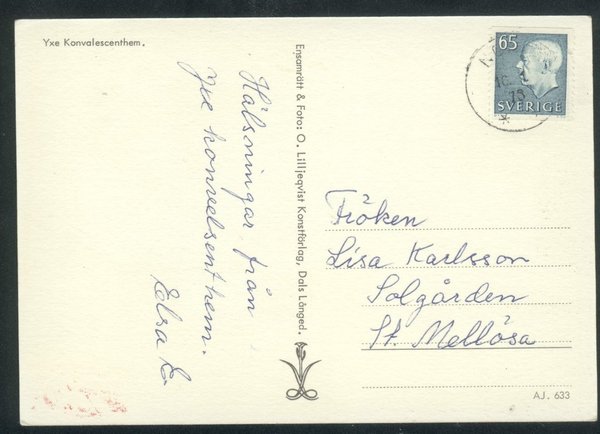 Yxe Konvalescenthem.
Hälsningar från
Yxe konvelsenthem.
Elsa E
Ensamrätt & Foto: O. Lilljeqvist Konstförlag, Dals Långed.
65
SVERIGE
Fröken
Lisa Karlsson
Solgården
St. Mellösa
AJ. 633